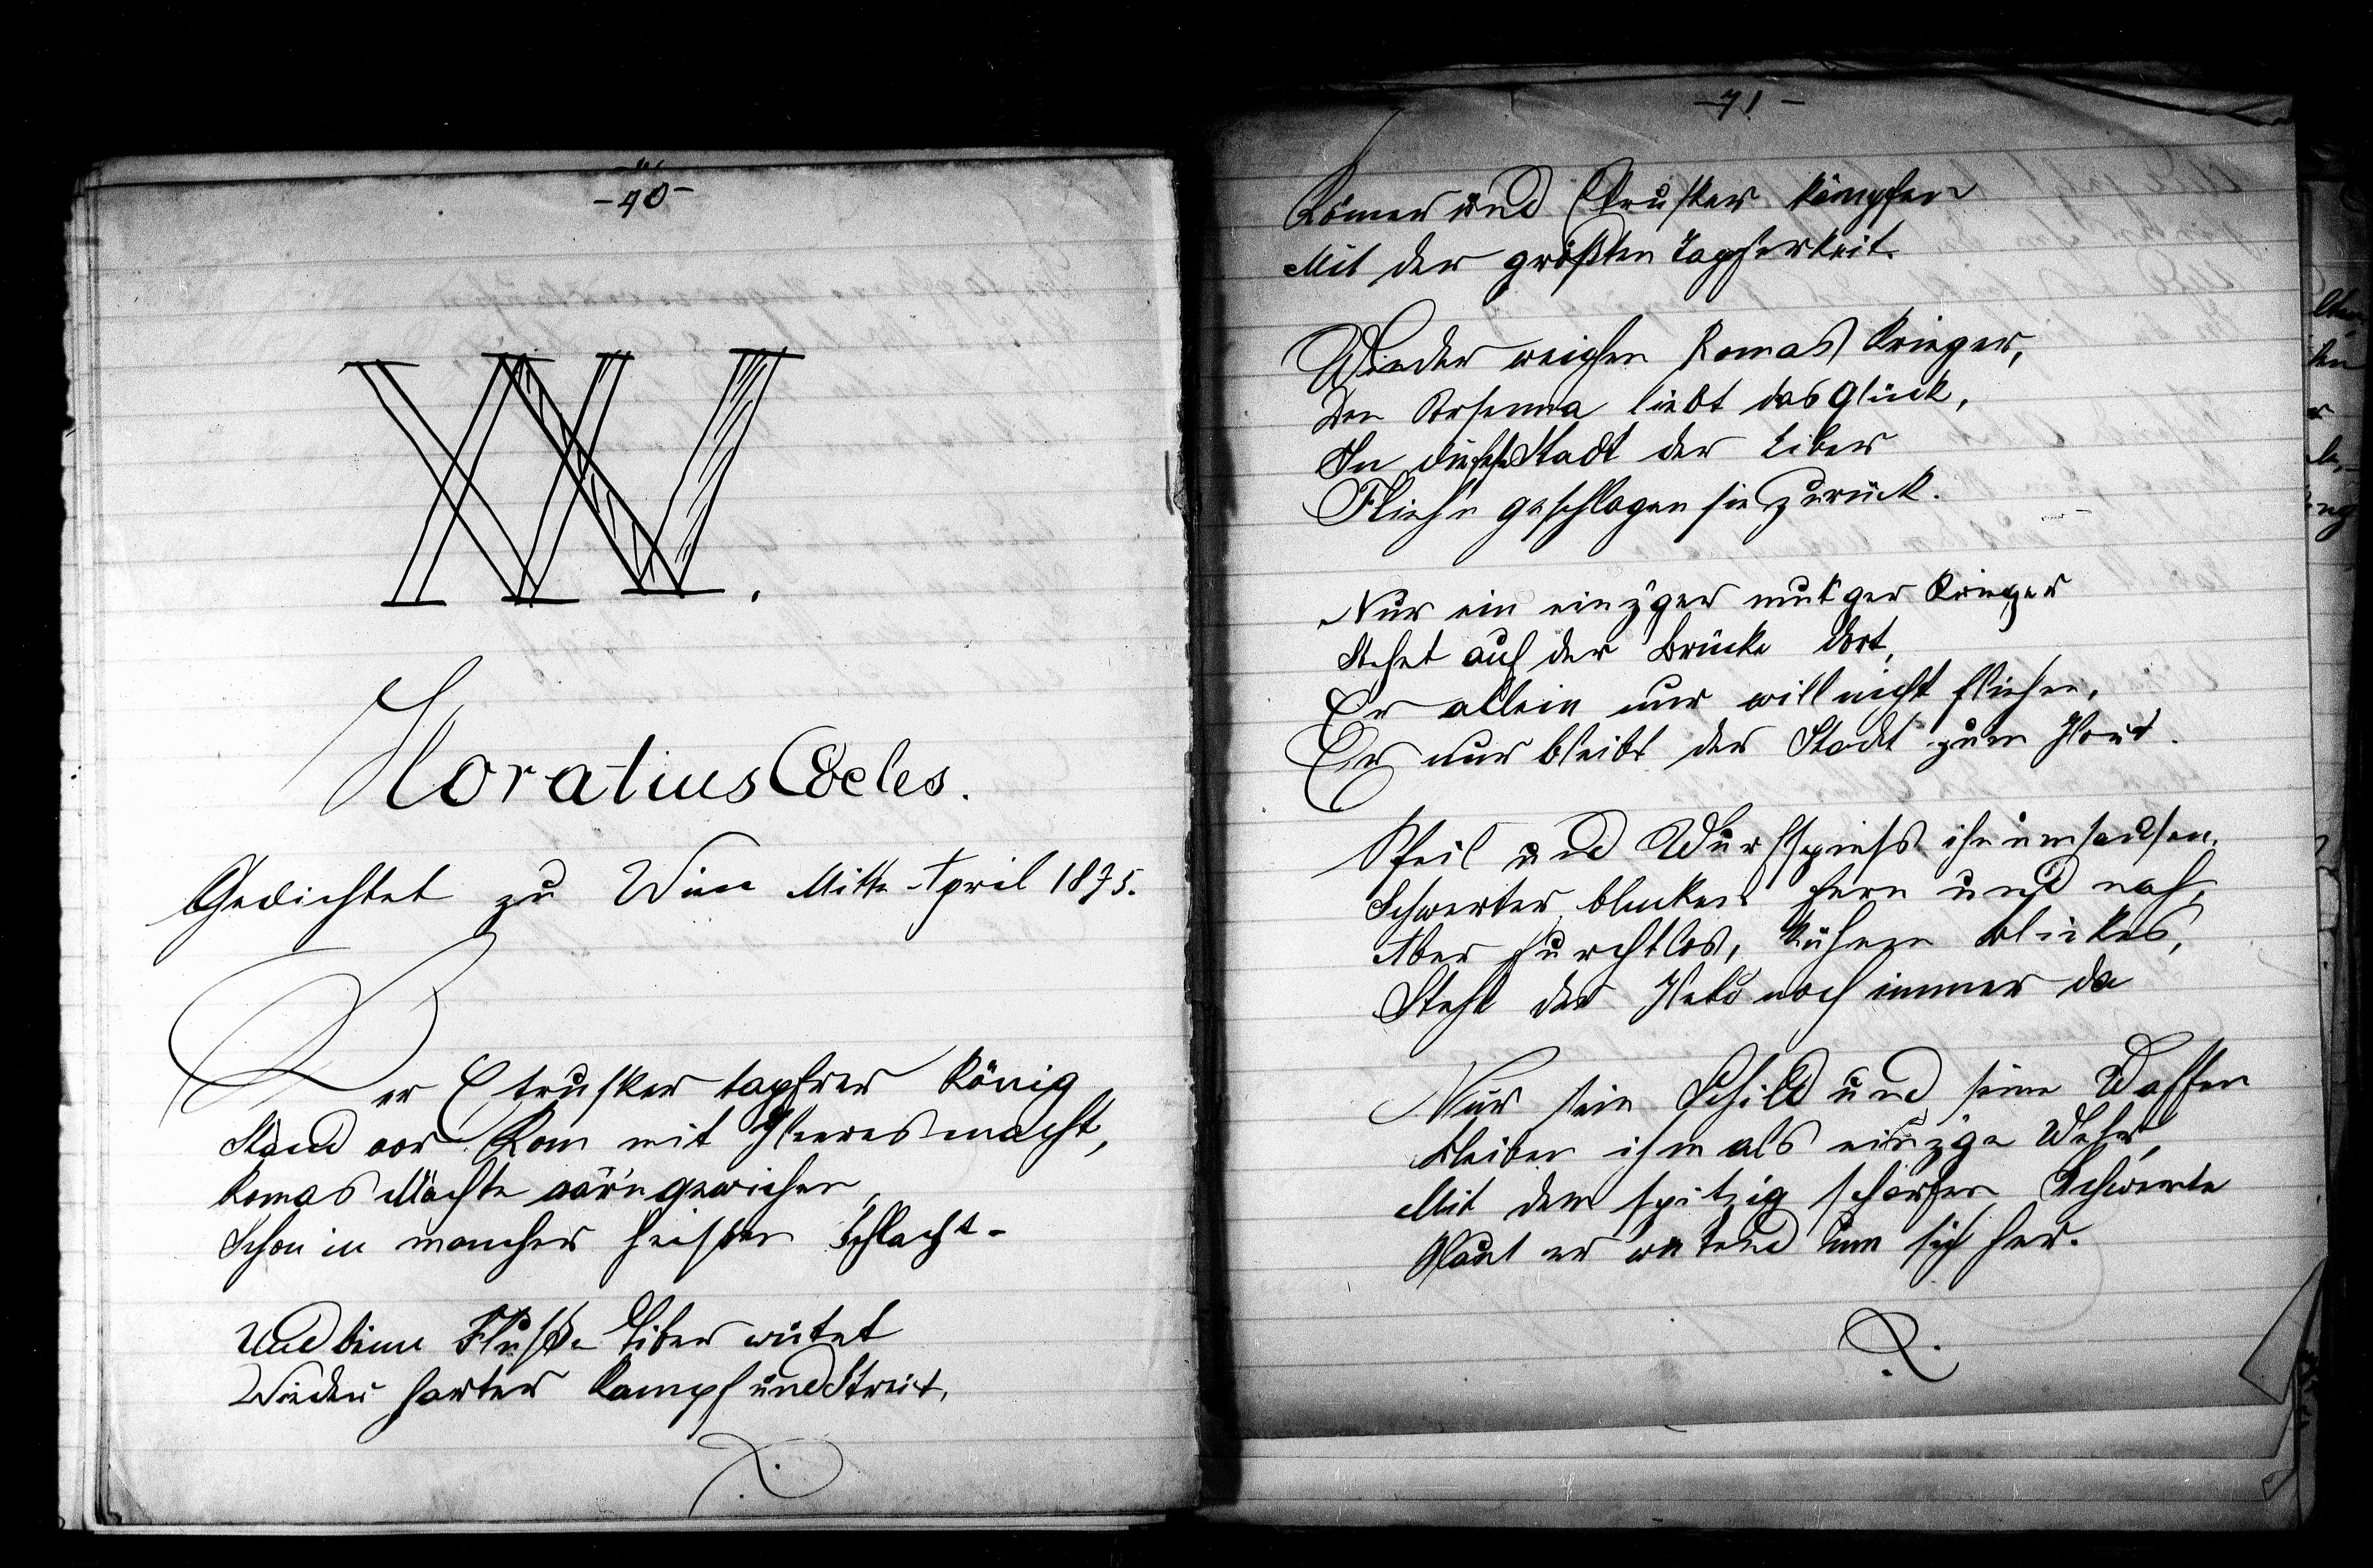 -40-
XV.
Horatius Cocles.
Gedichtet zu Wien Mitte April 1875.
Der Etrusker tapfrer König
Stand vor Rom mit Heeresmacht,
Romas Mächte war'n gewichen
Schon in mancher heißen Schlacht-
Und beim Fluße Tiber wütet
Wieder harter Kampf und Streit,
-41-
Römer und Etrusker kämpfen
Mit der größten Tapferkeit.
Wieder weichen Romas Krieger,
Den Porsenna liebt das Glück,
In die Stadt der Tiber
Flieh'n geschlagen sie zurück.
Nur ein einz'ger mut'ger Krieger
Stehet auf der Brücke dort,
Er allein nur will nicht fliehen,
Er nur bleibt der Stadt zum Hort.
Pfeil und Wurfspiess ihn umsausen,
Schwerter blinken fern und nah,
Aber furchtlos, kühnen Blickes,
Steht der Held noch immer da
Nur sein Schild und seine Waffen
Bleiben ihm als einz'ge Wehr,
Mit dem spitzig scharfen Schwerte
Haut er wütend um sich her.